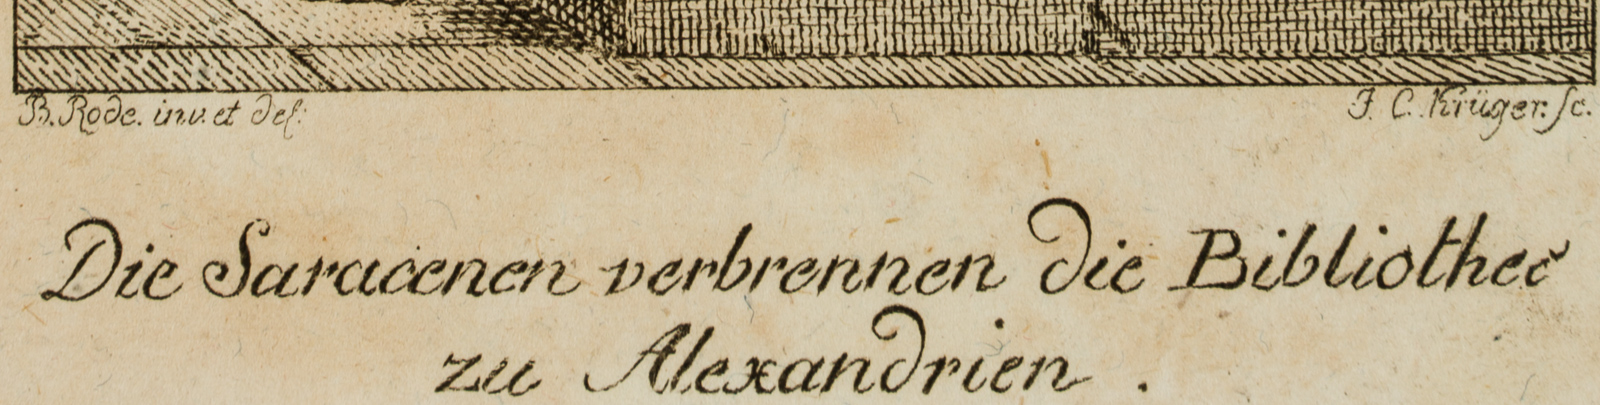 B. Rode. inv. et del:
J. C. Krüger. sc.
Die Saracenen verbrennen die Bibliothec
zu Alexandrien.